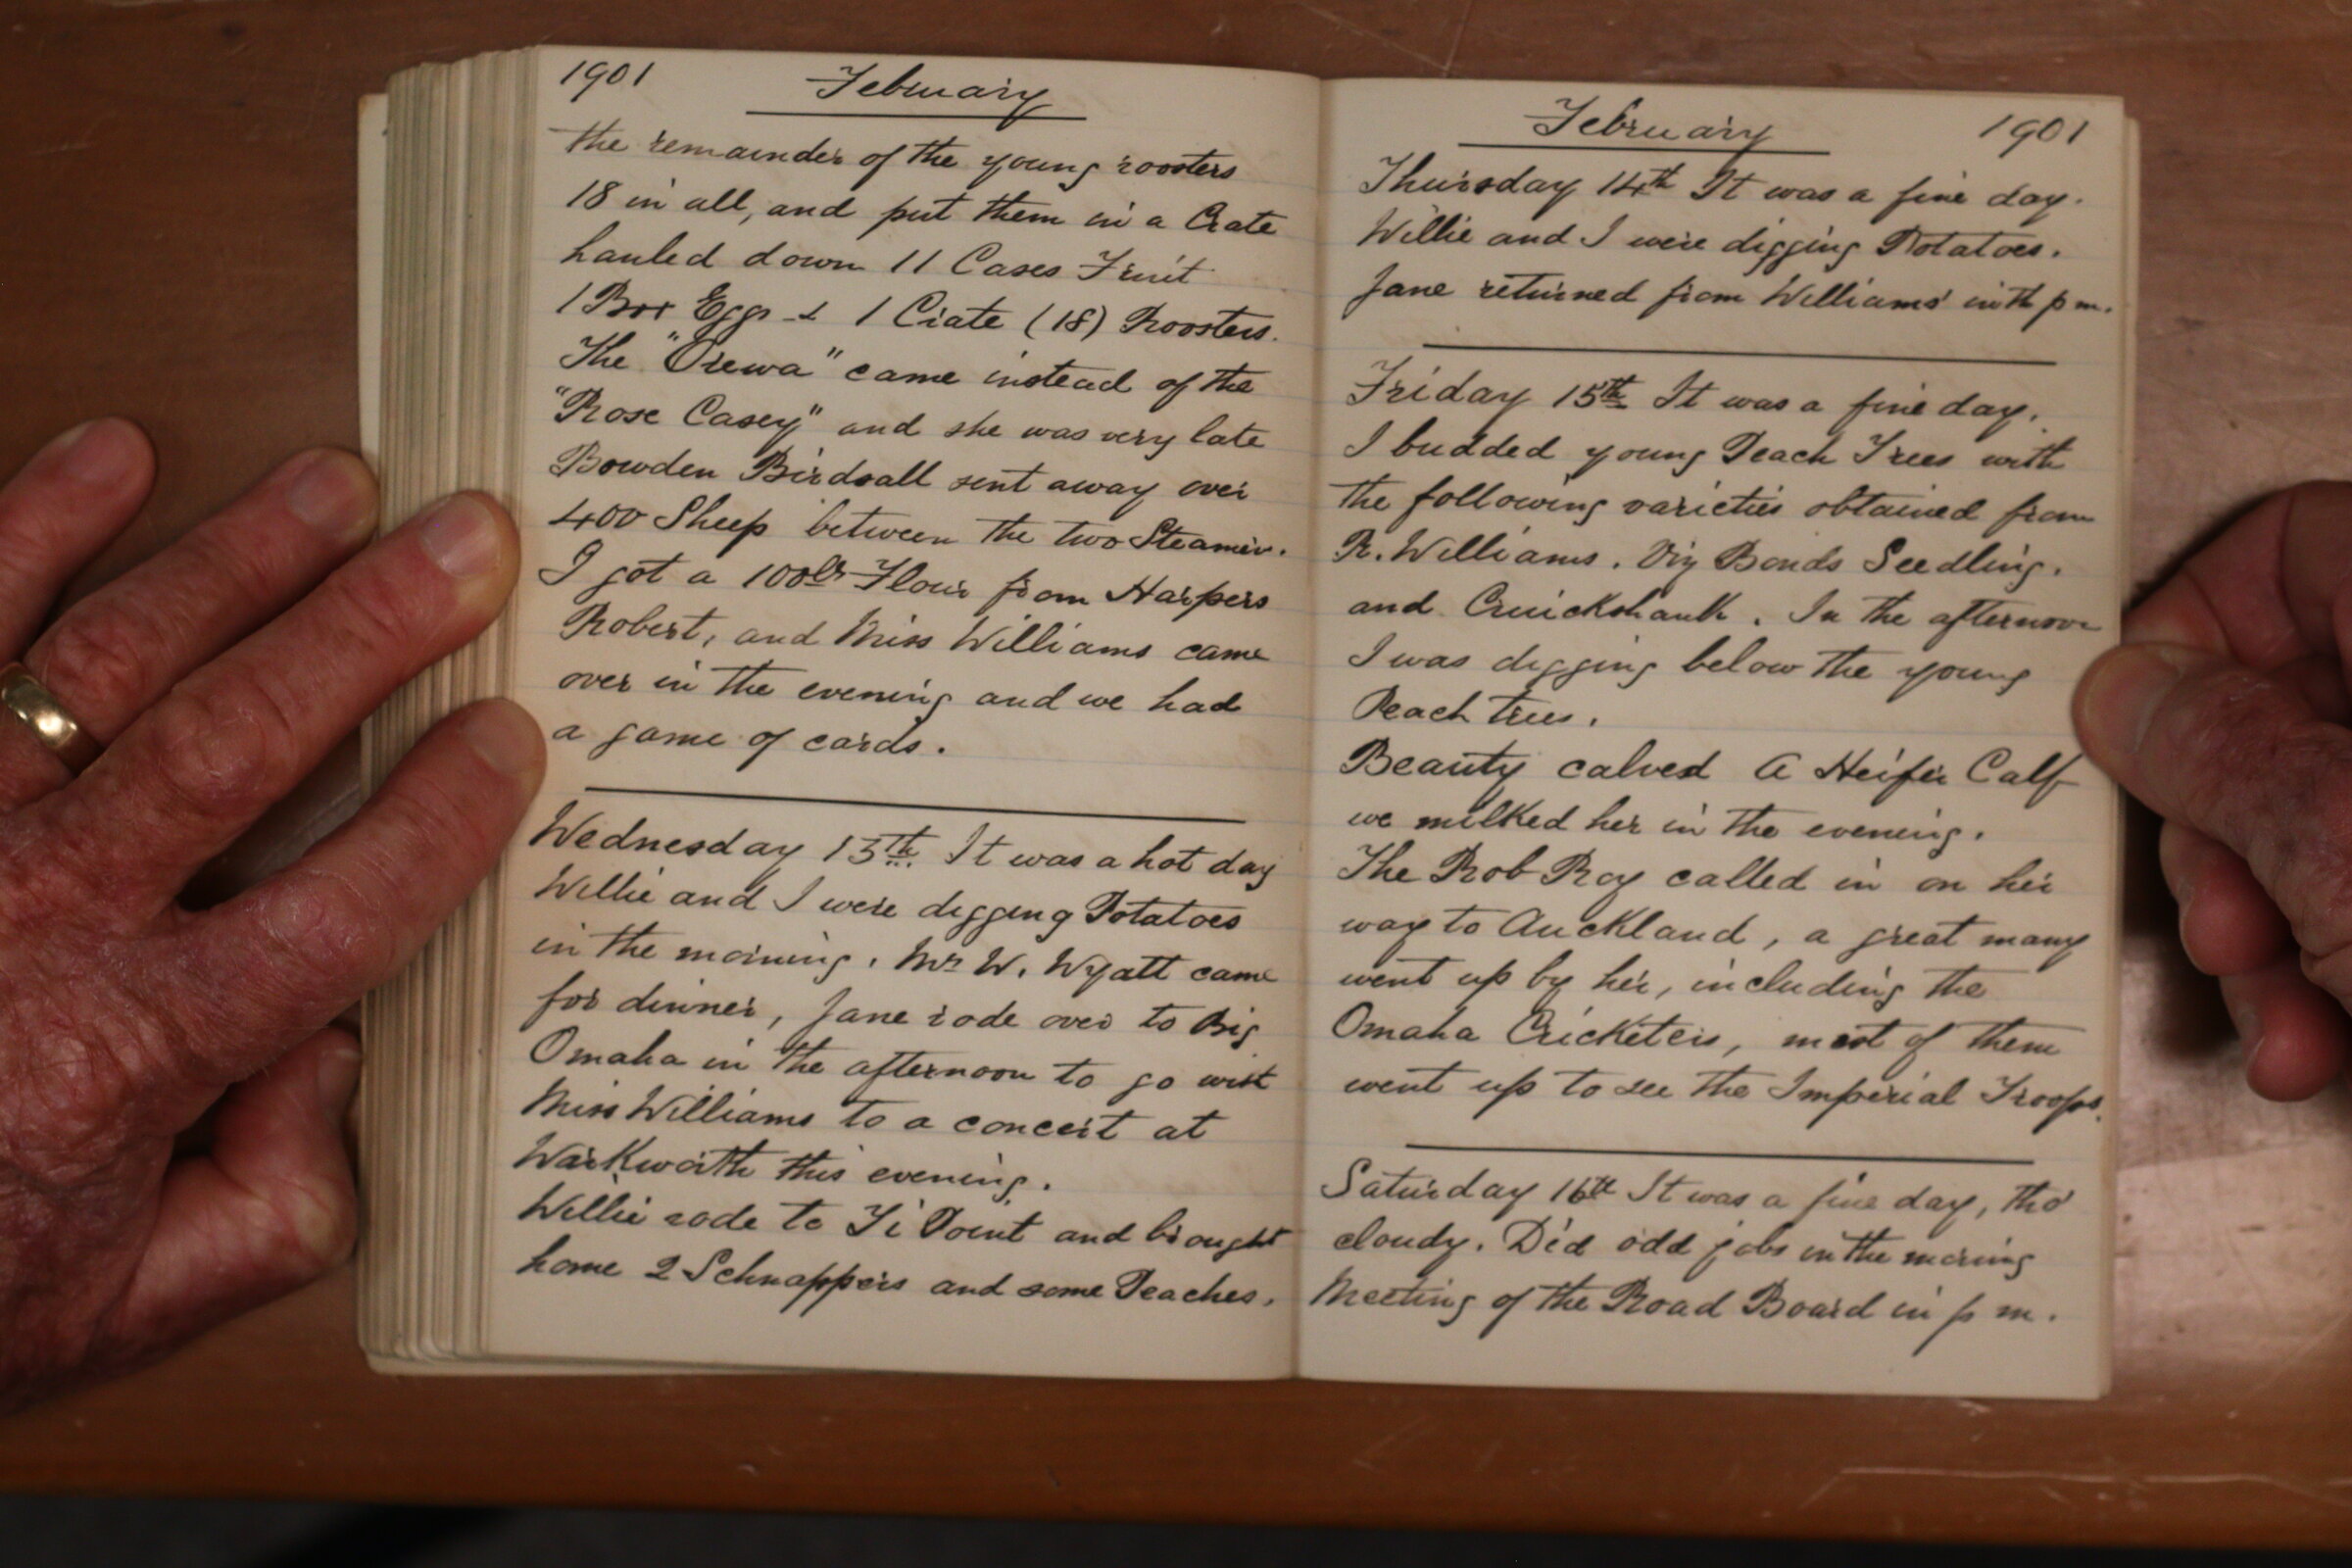 1901 February
the remainder of the young roosters
18 in all, and put them in a Crate
hauled down 11 Cases Fruit
1 Box Eggs & 1 Crate (18) Roosters.
The "Orewa" came instead of the
"Rose Casey" and she was very late
Bowden Birdsall sent away over
400 Sheep between the two Steamers.
I got a 100lb Flour from Harpers
Robert, and Miss Williams came
over in the evening and we had
a game of cards.
Wednesday 13th. It was a hot day
Willie and I were digging Potatoes
in the morning. Mr W. Wyatt came
for dinner, Jane rode over to Big
Omaha in the afternoon to go with
Miss Williams to a concert at
Warkworth this evening.
Willie rode to Ti Point and brought
home 2 Schnappers and some Peaches.
February 1901
Thursday 14th It was a fine day.
Willie and I were digging Potatoes.
Jane returned from Williams' in th pm.
Friday 15th It was a fine day.
I budded young Peach Trees with
the following varieties obtained from
R. Williams. Viz Bonds Seedling.
and Cruickshank. In the afternoon
I was digging below the young
Peach trees.
Beauty calved A Heifer Calf
we milked her in the evening.
The Rob Roy called in on her
way to Auckland, a great many
went up by her, including the
Omaha Cricketers, most of them
went up to see the Imperial Troops.
Saturday 16th It was a fine day, tho'
cloudy. Did odd jobs in the morning
Meeting of the Road Board in p m.